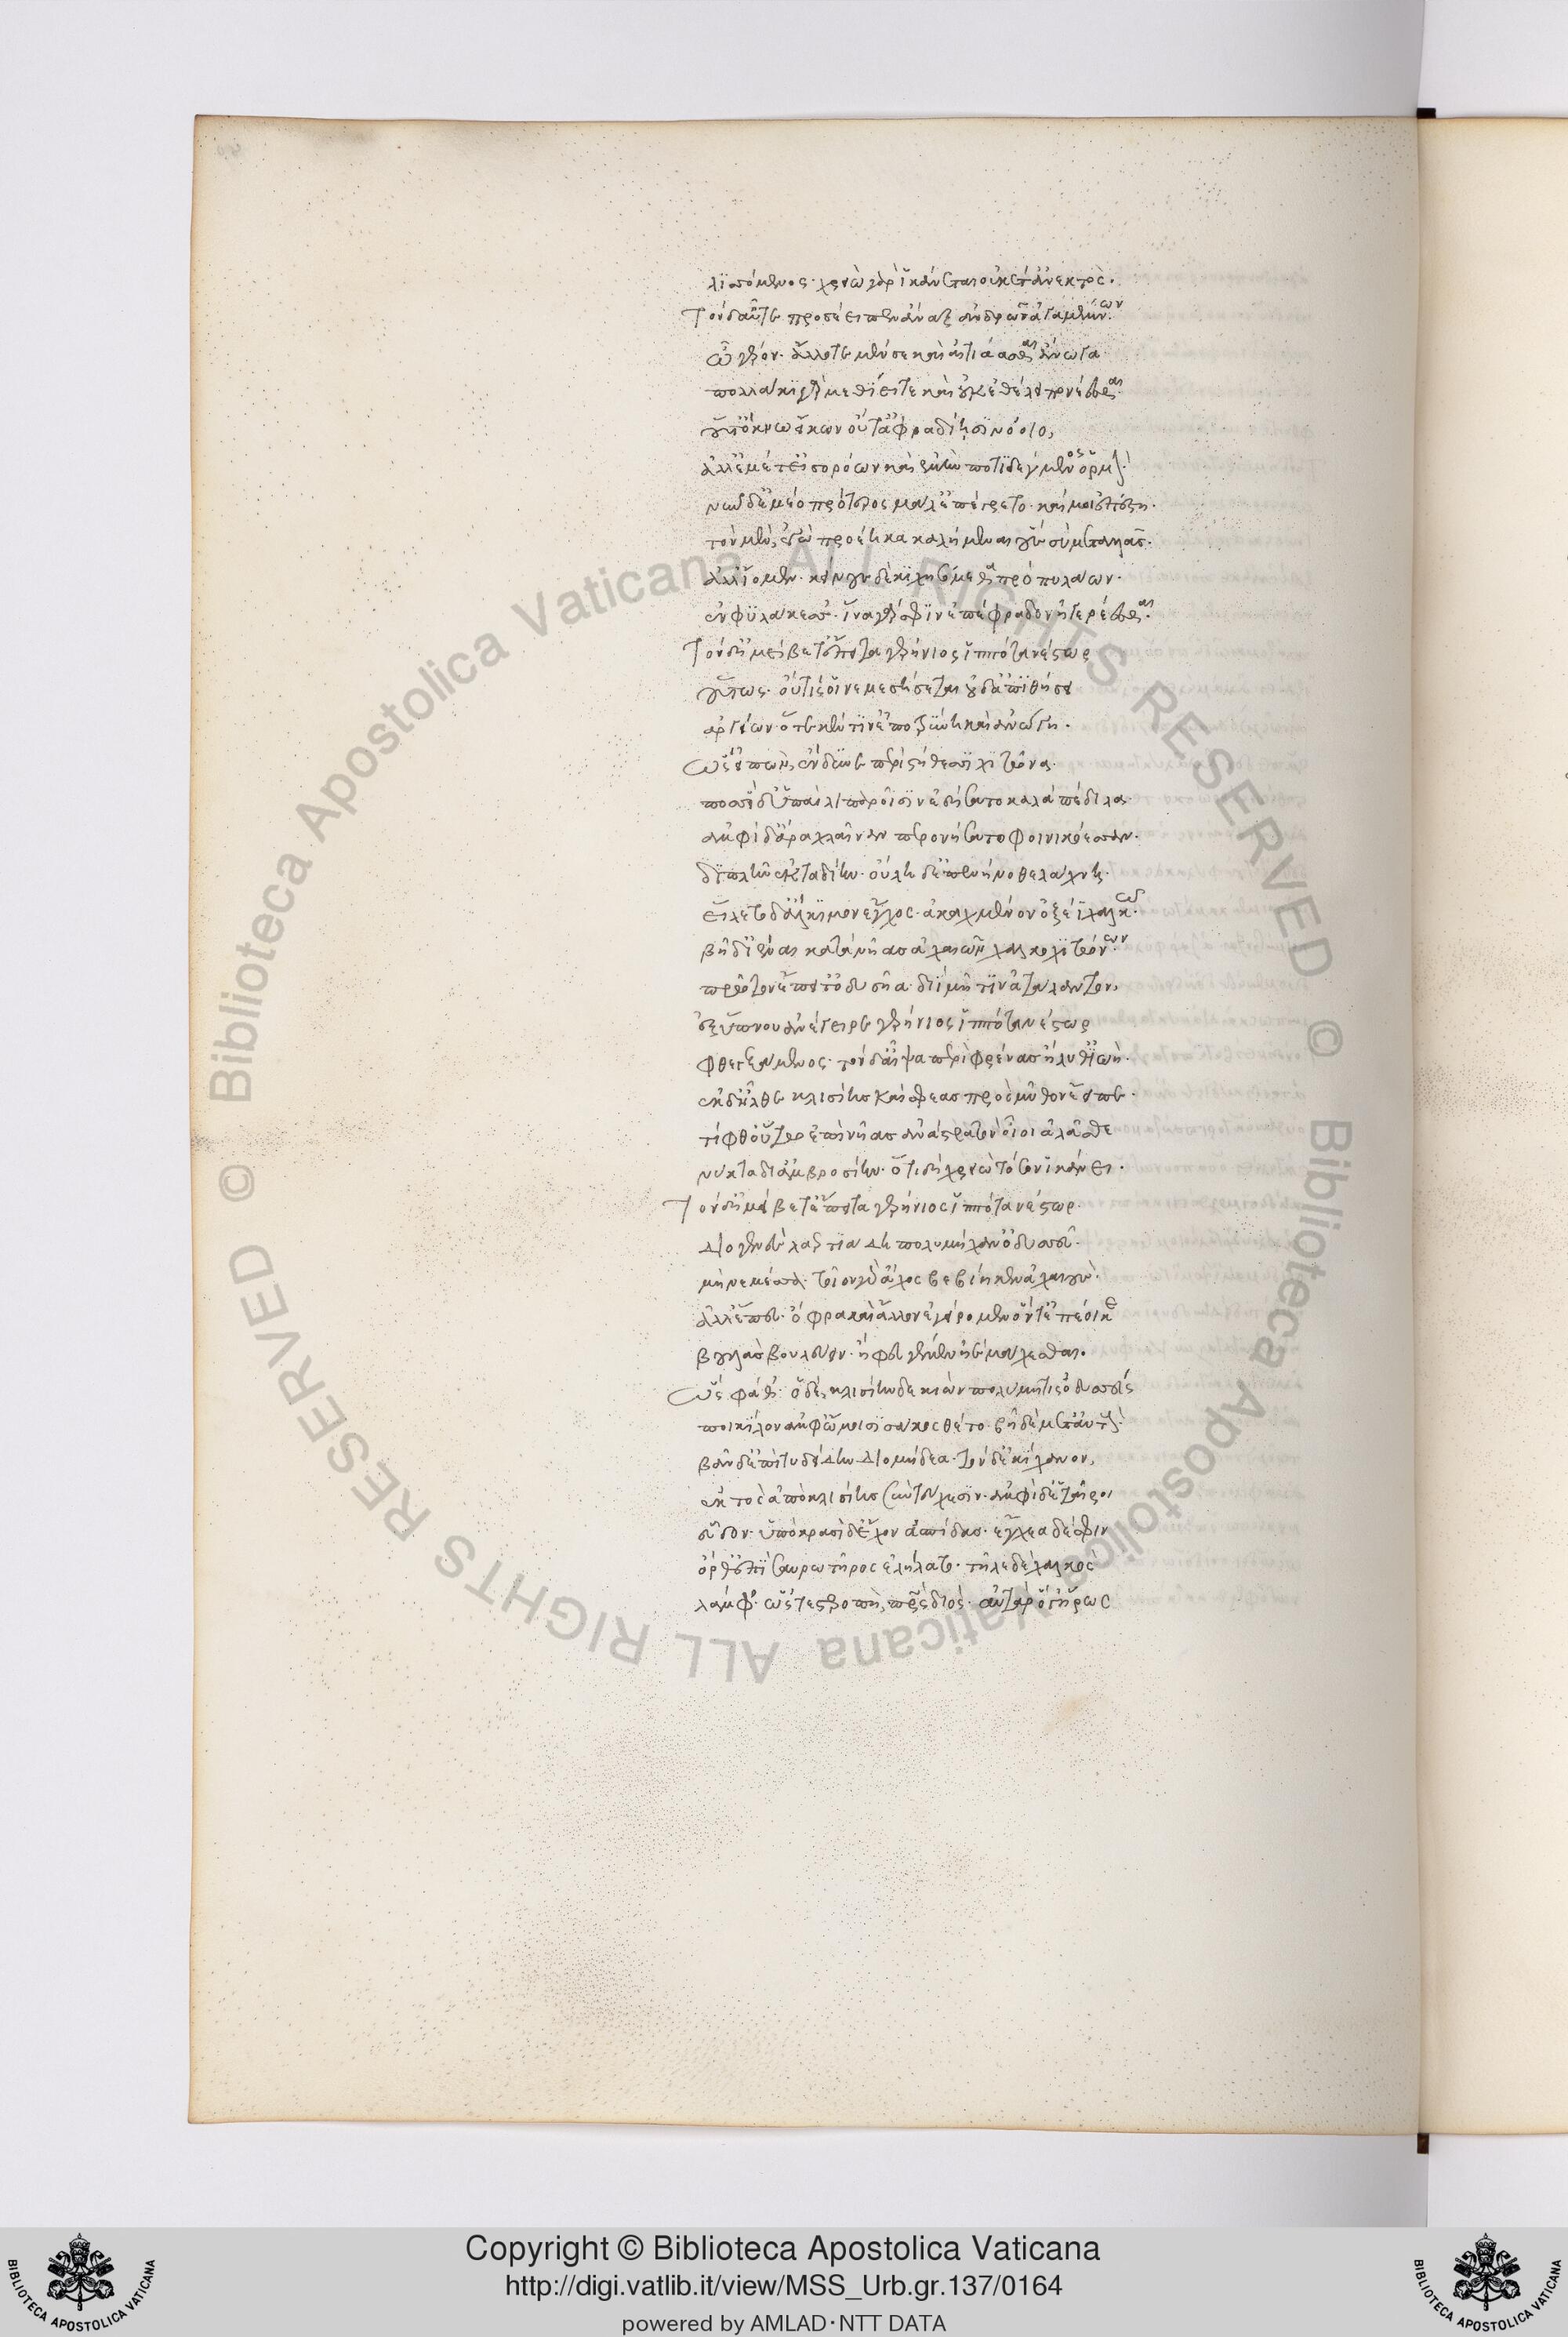 λισσόμενος· χρειὼ γὰρ ἱκάνεται οὐκέτ' ἀνεκτός·
Τὸν δ' αὖτε προσέειπεν ἄναξ ἀνδρῶν ἀγαμέμνων·
ὦ γέρον· ἄλλοτε μέν σε καὶ αἰτιάασθαι ἄνωγα·
πολλάκι γὰρ μεθιεῖ τε καὶ οὐκ ἐθέλει πονέεσθαι·
οὔτ' ὄκνω εἴκων οὔτ' ἀφραδίῃσι νόοιο,
ἀλλ' ἐμέ τ' εἰσορόων καὶ ἐμὴν ποτιδέγμενος ὁρμήν·
νῦν δ' ἐμέο πρότερος μάλ' ἐπέγρετο· καί μοι ἐπέστη·
τὸν μὲν ἐγὼ προέηκα καλήμεναι οὓς σὺ μεταλλᾶς·
ἀλλ' ἴομεν· κείνους δὲ κιχησόμεθα πρὸ πυλάων·
ἐν φυλάκεσσ'· ἵνα γάρ σφιν ἐπέφραδον ἠγερέεσθαι·
Τὸν δ' ἠμείβετ' ἔπειτα γερήνιος ἱππότα νέστωρ
οὕτως· οὔτις οἱ νεμεσήσεται οὐδ' ἀπιθήσει
ἀργείων· ὅτε κέν τιν' ἐποτρύνῃ καὶ ἀνώγῃ·
Ὣς εἰπὼν, ἔνδυνε περὶ στήθεσσι χιτῶνα·
ποσσὶ δ' ὑπαὶ λιπαροῖσιν ἐδήσατο καλὰ πέδιλα·
ἀμφὶ δ' ἄρα χλαῖναν περονήσατο φοινικόεσσαν·
διπλῆν ἐκταδίην· οὔλη δ' ἐπενήνοθε λάχνη·
εἵλετο δ' ἄλκιμον ἔγχος· ἀκαχμένον ὀξέϊ χαλκῷ·
βῆ δ' ἰέναι κατὰ νῆας ἀχαιῶν χαλκοχιτώνων·
πρῶτον ἔπειτ' ὀδυσῆα· διῒ μῆτιν ἀτάλαντον,
ἐξ ὕπνου ἀνέγειρε γερήνιος ἱππότα νέστωρ
φθεγξάμενος· τὸν δ' αἶψα περὶ φρένας ἤλυθ' ἰωή·
ἐκ δ' ἦλθε κλισίης καί σφεας πρὸς μῦθον ἔειπε·
τίφθ' οὕτω κατὰ νῆας ἀνὰ στρατὸν οἶοι ἀλᾶσθε
νύκτα δι' ἀμβροσίην· ὅ τι δὴ χρειὼ τόσον ἱκάνει·
Τὸν δ' ἠμείβετ' ἔπειτα γερήνιος ἱππότα νέστωρ·
διογενὲς λαερτιάδη πολυμήχαν' ὀδυσσεῦ·
μὴ νεμέσα· τοῖον γὰρ ἄχος βεβίηκεν ἀχαιούς·
ἀλλ' ἕπευ· ὄφρα καὶ ἄλλον ἐγείρομεν ὅντ' ἐπέοικε
βουλὰς βουλεύειν· ἢ φευγέμεν ἠὲ μάχεσθαι·
Ὣς φάθ'· ὁ δὲ, κλισίην δὲ κιὼν πολύμητις ὀδυσσεύς
ποικίλον ἀμφ' ὤμοισι σάκος θέτο· βῆ δὲ μετ' αὐτούς·
βὰν δ' ἐπὶ τυδείδην διομήδεα· τὸν δ' ἐκίχανον,
ἐκτὸς ἀπὸ κλισίης σὺν τεύχεσιν· ἀμφὶ δ' ἑταῖροι
εὗδον· ὑπὸ κρασὶ δ' ἔχον ἀσπίδας· ἔγχεα δέ σφιν
ὄρθ' ἐπὶ σαυρωτῆρος ἐλήλατο· τῆλε δὲ χαλκὸς
λάμφ'· ὥς τε στεροπὴ, πατρὸς διός· αὐτὰρ ὅγ' ἥρως
Copyright © Biblioteca Apostolica Vaticana
http://digi.vatlib.it/view/MSS_Urb.gr.137/0164
powered by AMLAD·NTT DATA
BIBLIOTECA APOSTOLICA VATICANA
BIBLIOTECA APOSTOLICA VATICANA
© Biblioteca Apostolica Vaticana ALL RIGHTS RESERVED
© Biblioteca Apostolica Vaticana ALL RIGHTS RESERVED